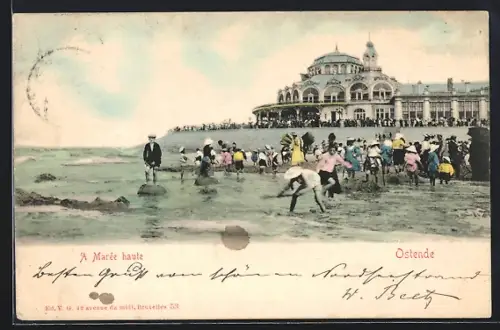 A Marée haute
Ostende
Besten Gruß vom schönen Nordseestrand
W. Beetz
Ed. V. G. 42 avenue du midi, Bruxelles 53